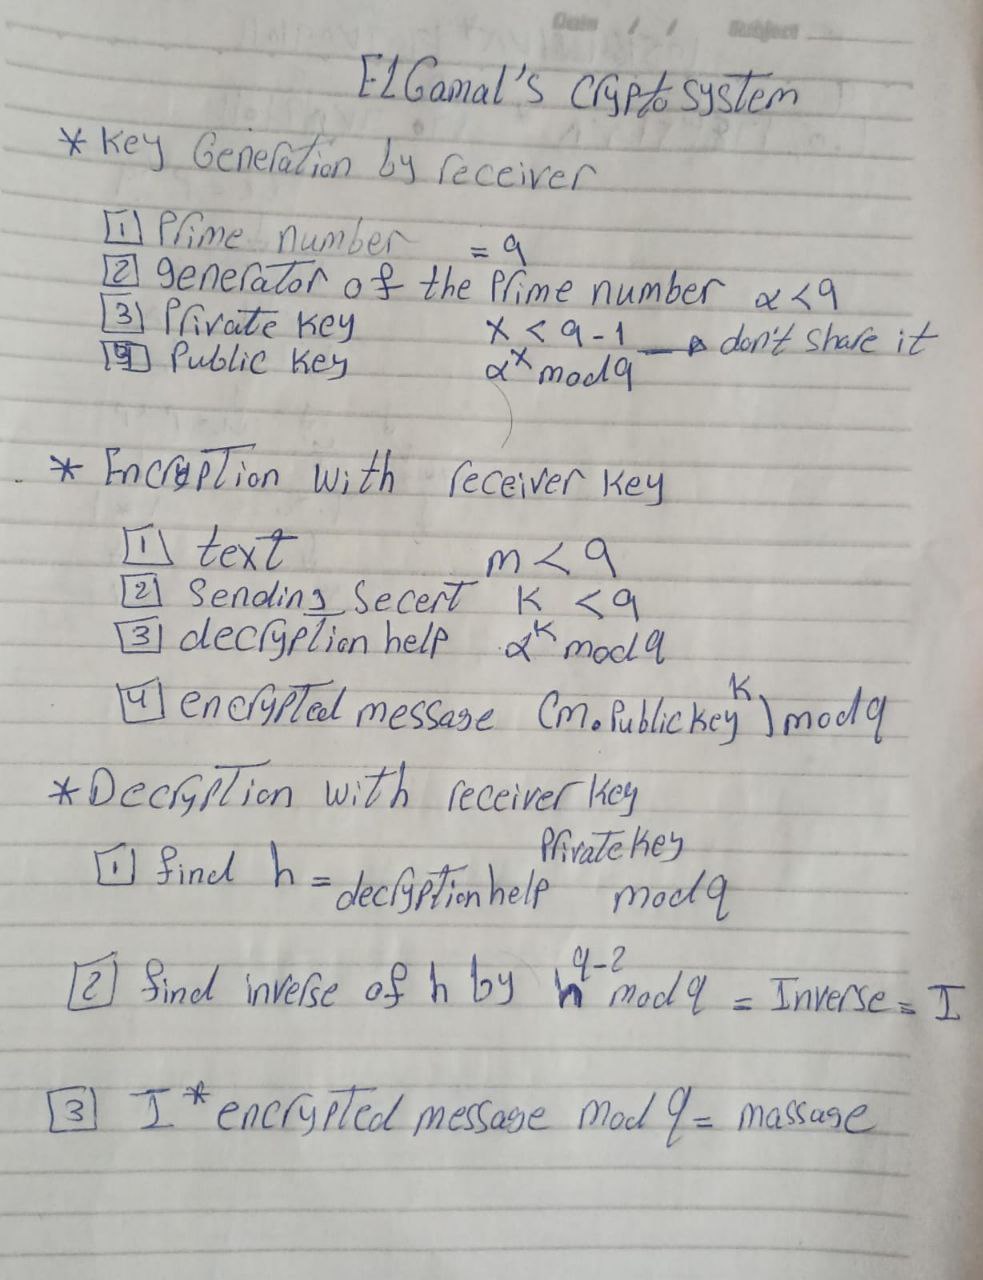 Date / / Subject
ElGamal's Cryptosystem
* Key Generation by receiver
1 Prime number = q
2 generator of the Prime number α < q
3 Private key x < q - 1 → don't share it
4 Public key α^x mod q
* Encryption with receiver key
1 text m < q
2 Sending Secert K < q
3 decryption help α^K mod q
4 encrypted message (m . Public key^K) mod q
* Decryption with receiver key
1 find h = decryption help^Private key mod q
2 find inverse of h by h^q-2 mod q = Inverse = I
3 I * encrypted message mod q = massage